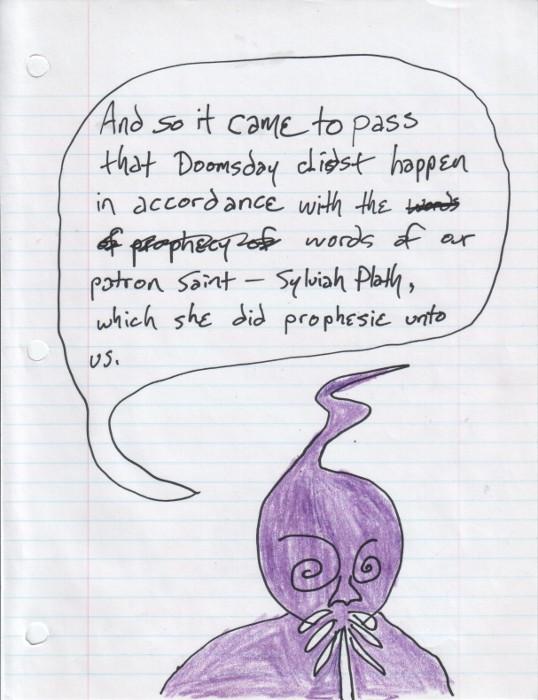 And so it came to pass
that Doomsday didst happen
in accordance with the words
of prophecy of words of our
patron saint — Sylviah Plath,
which she did prophesie unto
us.